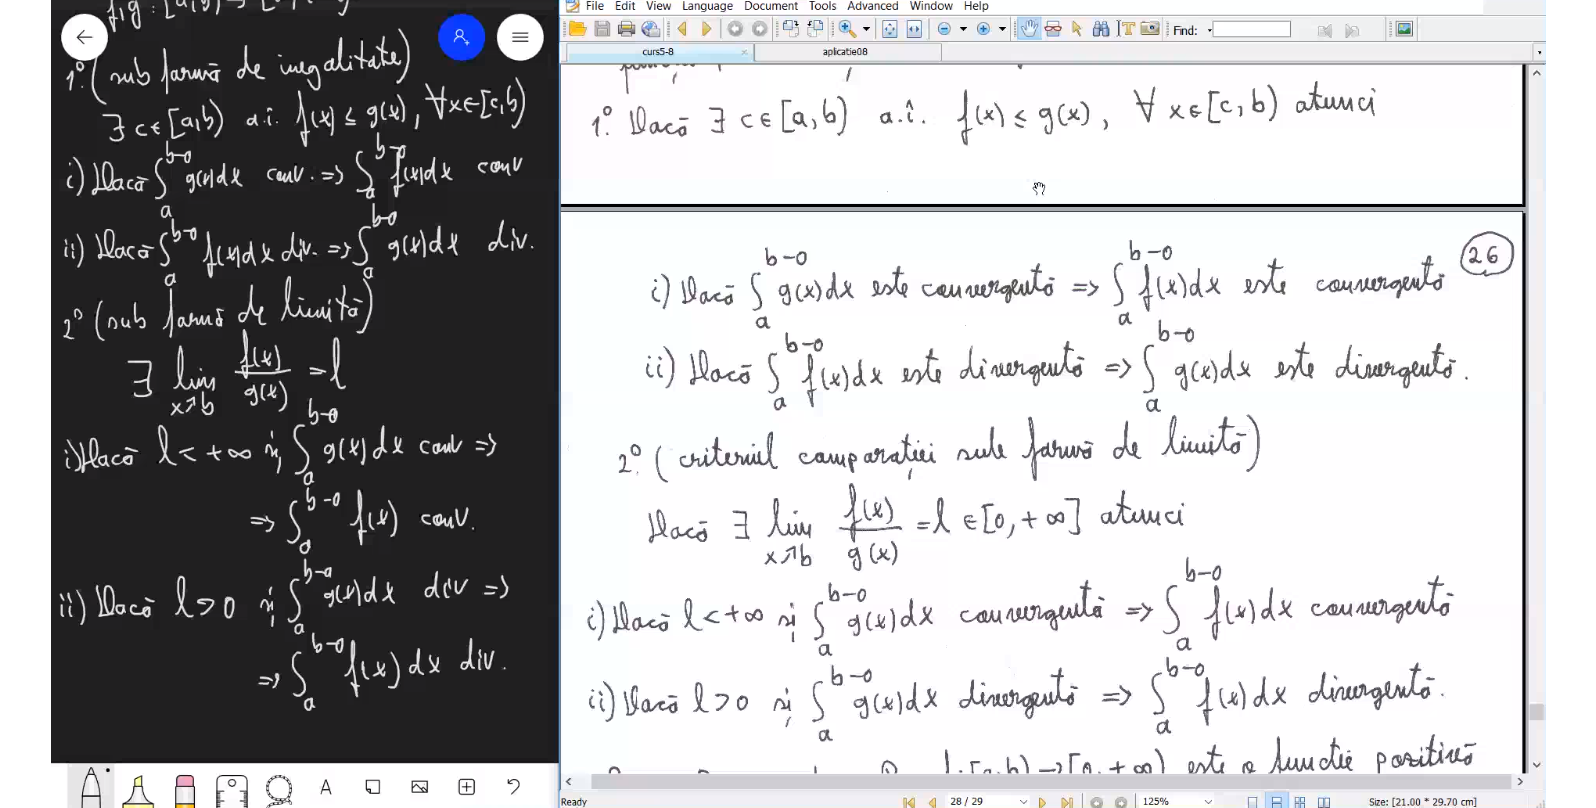 f, g : [a, b) → [0, +∞)
1° (sub formă de inegalitate)
∃ c∈[a,b) a.î. f(x) ≤ g(x), ∀x∈[c,b)
i) Dacă ∫_a^{b-0} g(x)dx conv. => ∫_a^{b-0} f(x)dx conv
ii) Dacă ∫_a^{b-0} f(x)dx div. => ∫_a^{b-0} g(x)dx div.
2° (sub formă de limită)
∃ lim_{x↗b} f(x)/g(x) = l
i) Dacă l < +∞ și ∫_a^{b-0} g(x)dx conv =>
=> ∫_a^{b-0} f(x) conv.
ii) Dacă l > 0 și ∫_a^{b-0} g(x)dx div =>
=> ∫_a^{b-0} f(x)dx div.
A
File Edit View Language Document Tools Advanced Window Help
Find:
curs5-8
aplicatie08
1°. Dacă ∃ c∈[a,b) a.î. f(x) ≤ g(x), ∀ x∈[c,b) atunci
26
i) Dacă ∫_a^{b-0} g(x)dx este convergentă => ∫_a^{b-0} f(x)dx este convergentă
ii) Dacă ∫_a^{b-0} f(x)dx este divergentă => ∫_a^{b-0} g(x)dx este divergentă.
2°. (criteriul comparației sub formă de limită)
Dacă ∃ lim_{x↗b} f(x)/g(x) = l ∈ [0, +∞] atunci
i) Dacă l < +∞ și ∫_a^{b-0} g(x)dx convergentă => ∫_a^{b-0} f(x)dx convergentă
ii) Dacă l > 0 și ∫_a^{b-0} g(x)dx divergentă => ∫_a^{b-0} f(x)dx divergentă.
f: [a,b) → [0, +∞) este o funcție pozitivă
Ready
28 / 29
125%
Size: [21.00 * 29.70 cm]